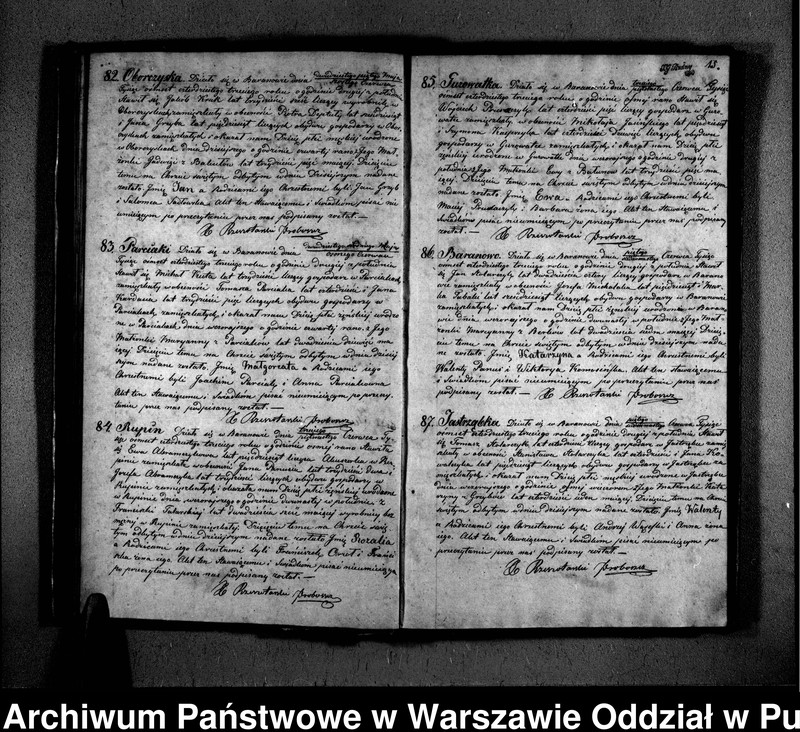 82. Oborczyska Działo się w Baranowie dnia dwudziestego piątego Maja
tysiąc ośmset czterdziestego trzeciego roku o godzinie drugiej z południa
Stawił się Jakób Kruk lat trzydzieści liczący wyrobnik w
Oborczyskach zamieszkały w obecności Piotra Deptuły lat
i Jana Grzyba lat pięćdziesiąt liczących obydwu gospodarzy w Obor-
czyskach zamieszkałych i okazał nam Dziecię płci męskiej urodzone
w Oborczyskach dnia dzisiejszego o godzinie czwartej rano z Jego Mał-
żonki Jadwigi z lat trzydzieści pięć mającej. Dziecięciu
temu na Chrzcie świętym odbytym w dniu dzisiejszym nadane
zostało Imię Jan a Rodzicami jego Chrzestnemi byli Jan Grzyb
i Salomea Akt ten Stawiającemu i Świadkom pisać nie
umiejącym po przeczytaniu przez nas podpisany został. —
X Rzewotarski Proboszcz
83. Parciaki Działo się w Baranowie dnia
Czerwca
Tysiąc ośmset czterdziestego trzeciego roku o godzinie drugiej z południa
Stawił się Michał lat trzydzieści liczący gospodarz w Parciakach
zamieszkały w obecności Tomasza Parciaka lat czterdzieści i Jana
Kordasia lat trzydzieści pięć liczących obydwu gospodarzy w
Parciakach zamieszkałych i okazał nam Dziecię płci żeńskiej urodzo-
ne w Parciakach dnia wczorajszego o godzinie czwartej rano z Jego
Małżonki Maryanny z Parciaków lat dwadzieścia dziewięć ma-
jącej Dziecięciu temu na Chrzcie świętym odbytym w dniu dzisiej-
szym nadane zostało Imię Małgorzata a Rodzicami jego
Chrzestnemi byli Joachim Parciak i Anna Parciakowna
Akt ten Stawiającemu i Świadkom pisać nieumiejącym po przeczy-
taniu przez nas podpisany został. —
X Rzewotarski Proboszcz
84. Rupin Działo się w Baranowie dnia Czerwca Ty-
siąc ośmset czterdziestego trzeciego roku o godzinie ósmej rano Stawiła
się Ewa Abramczykowa lat pięćdziesiąt licząca Akuszerka w Ru-
pinie zamieszkała w obecności Jana lat trzydzieści dwa i
Józefa Abramczyka lat trzydzieści liczących obydwu gospodarzy w
Rupinie zamieszkałych i okazała nam Dziecię płci żeńskiej urodzone
w Rupinie dnia wczorajszego o godzinie dwunastej w południe z
Franciszki lat dwadzieścia sześć mającej wyrobnicy bez-
mężnej w Rupinie zamieszkałej. Dziecięciu temu na Chrzcie świę-
tym odbytym w dniu dzisiejszym nadane zostało Imię Rozalia
a Rodzicami jego Chrzestnemi byli Franciszek i Franci-
szka żona jego. Akt ten Stawiającemu i Świadkom pisać nieumiejącym
po przeczytaniu przez nas podpisany został. —
X Rzewotarski Proboszcz
13.
85. Działo się w Baranowie dnia Czerwca Tysiąc
ośmset czterdziestego trzeciego roku o godzinie ósmej rano Stawił się
Wojciech lat czterdzieści pięć liczący gospodarz w
zamieszkały w obecności Mikołaja lat pięćdziesiąt
i Szymona Kacprzyka lat czterdzieści dziewięć liczących obydwu
gospodarzy w zamieszkałych i okazał nam Dziecię płci
żeńskiej urodzone w dnia wczorajszego o godzinie drugiej z
południa z Jego Małżonki Ewy z lat trzydzieści pięć ma-
jącej. Dziecięciu temu na Chrzcie świętym odbytym w dniu dzisiejszym
nadane zostało Imię Ewa a Rodzicami jego Chrzestnemi byli
Maciej i Barbara żona jego. Akt ten Stawiającemu i
Świadkom pisać nieumiejącym po przeczytaniu przez nas podpisany
został. — X Rzewotarski Proboszcz
86. Baranowo. Działo się w Baranowie dnia Czerwca Tysiąc
ośmset czterdziestego trzeciego roku o godzinie drugiej z południa Stawił
się Jan Stolarczyk lat dwadzieścia cztery liczący gospodarz w Barano-
wie zamieszkały w obecności Józefa Michalaka lat pięćdziesiąt i
lat liczących obydwu gospodarzy w Baranowie
zamieszkałych i okazał nam Dziecię płci żeńskiej urodzone w Barano-
wie dnia wczorajszego o godzinie dwunastej w południe z Jego Mał-
żonki Maryanny z lat dwadzieścia mającej. Dziecię-
ciu temu na Chrzcie świętym odbytym w dniu dzisiejszym nada-
ne zostało Imię Katarzyna a Rodzicami jego Chrzestnemi byli
Walenty i Wiktorya Akt ten Stawiającemu
i Świadkom pisać nieumiejącym po przeczytaniu przez nas
podpisany został. — X Rzewotarski Proboszcz
87. Jastrząbka Działo się w Baranowie dnia Czerwca Tysiąc
ośmset czterdziestego trzeciego roku o godzinie drugiej z południa Stawił
się Tomasz Stolarczyk lat czterdzieści liczący gospodarz w Jastrząbce zamie-
szkały w obecności Stanisława Stolarczyka lat czterdzieści i Jana Ko-
walczyka lat pięćdziesiąt liczących obydwu gospodarzy w Jastrząbce za-
mieszkałych i okazał nam Dziecię płci męskiej urodzone w Jastrząbce
dnia wczorajszego o godzinie ósmej wieczorem z Jego Małżonki Kata-
rzyny z Grzybów lat czterdzieści jeden mającej. Dziecięciu temu na Chrzcie
świętym odbytym w dniu dzisiejszym nadane zostało Imię Walenty
a Rodzicami jego Chrzestnemi byli Andrzej i Anna żona
jego. Akt ten Stawiającemu i Świadkom pisać nieumiejącym po
przeczytaniu przez nas podpisany został. —
X Rzewotarski Proboszcz
Archiwum Państwowe w Warszawie Oddział w Pu